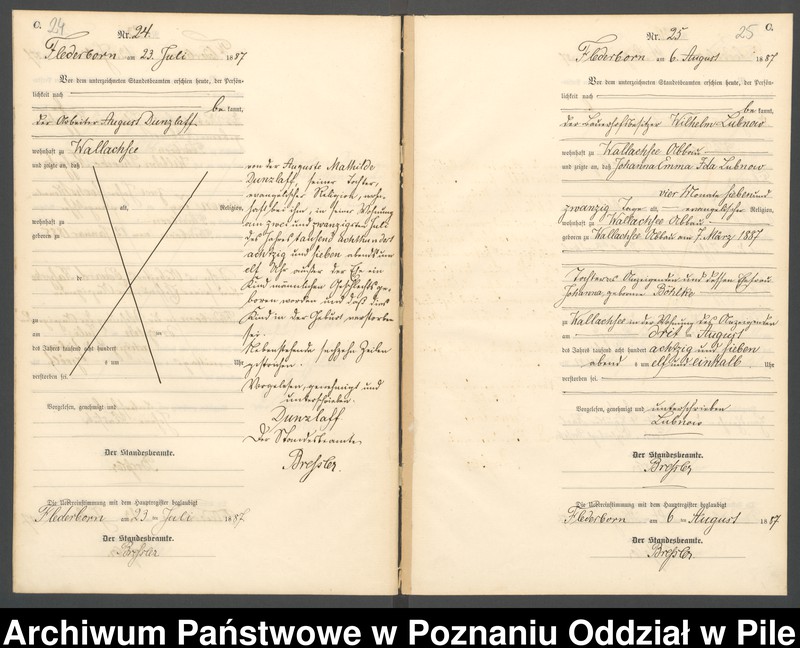 C. 24
Nr. 24
Flederborn am 23. Juli 1887
Vor dem unterzeichneten Standesbeamten erschien heute, der Persön-
lichkeit nach
be kannt,
der Arbeiter August Dunzlaff
wohnhaft zu Wallachsee
und zeigte an, daß
alt, Religion,
wohnhaft zu
geboren zu
de
zu
am
des Jahres tausend acht hundert
um Uhr
verstorben sei.
Vorgelesen, genehmigt und
Der Standesbeamte.
Die Uebereinstimmung mit dem Hauptregister beglaubigt
Flederborn am 23 ten Juli 1887.
Der Standesbeamte.
Bressler
von der Auguste Mathilde
Dunzlaff, seiner Tochter,
evangelischer Religion, wohn-
haft bei ihm, in seiner Wohnung
am zwei und zwanzigsten Juli
des Jahres tausend achthundert
achtzig und sieben abends um
elf Uhr außer der Ehe ein
Kind männlichen Geschlechts ge-
boren worden und daß dies
Kind in der Geburt verstorben
sei.
Nebenstehende sechzehn Zeilen
gestrichen.
Vorgelesen, genehmigt und
unterschrieben.
Dunzlaff
Der Standesbeamte
Bressler.
25 C.
Nr. 25
Flederborn am 6. August 1887
Vor dem unterzeichneten Standesbeamten erschien heute, der Persön-
lichkeit nach
be kannt,
der Bauerhofsbesitzer Wilhelm Lubnow
wohnhaft zu Wallachsee Abbau
und zeigte an, daß Johanna Emma Ida Lubnow
vier Monate sieben und
zwanzig Tage alt, evangelischer Religion,
wohnhaft zu Wallachsee Abbau
geboren zu Wallachsee Abbau am 7. März 1887
Tochter des Anzeigenden und dessen Ehefrau
Johanna geborene Böhlke
zu Wallachsee in der Wohnung des Anzeigenden
am drit ten August
des Jahres tausend acht hundert achtzig und sieben
abend s um elf und ein halb Uhr
verstorben sei.
Vorgelesen, genehmigt und unterschrieben
Lubnow
Der Standesbeamte.
Bressler
Die Uebereinstimmung mit dem Hauptregister beglaubigt
Flederborn am 6 ten August 1887
Der Standesbeamte.
Bressler.
Archiwum Państwowe w Poznaniu Oddział w Pile